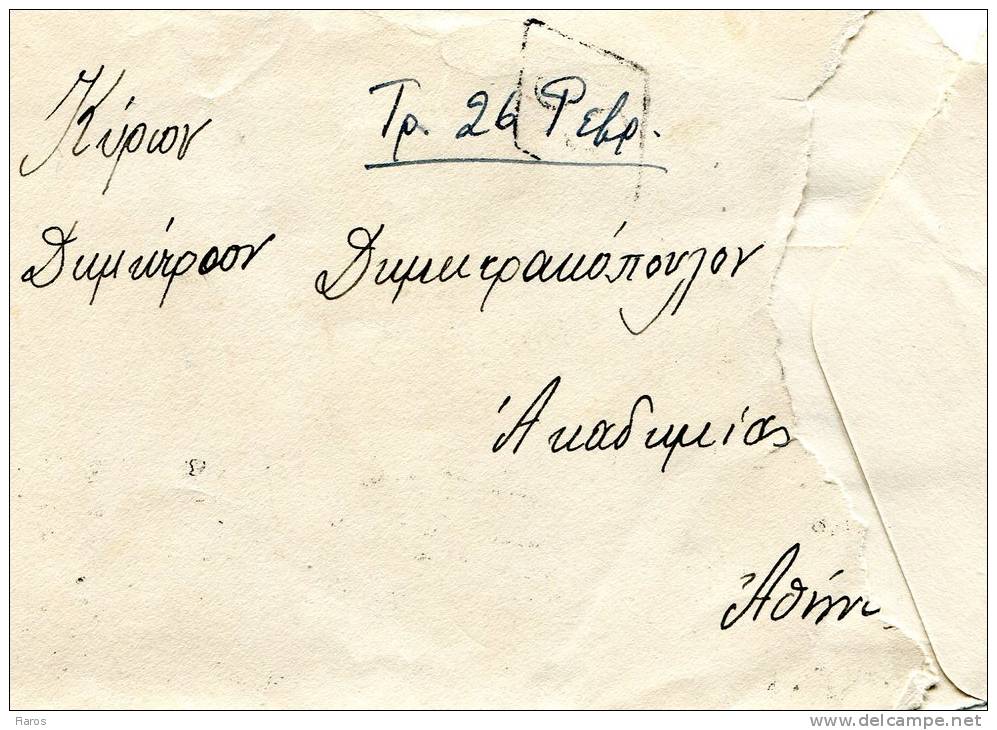 Κύριον Τρ. 26 Φεβρ.
Δημήτριον Δημητρακόπουλον
Ἀκαδημίας
Ἀθήν
Raros
delcampe.net